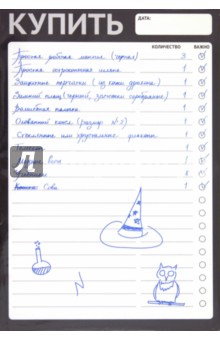 КУПИТЬ
ДАТА:
КОЛИЧЕСТВО ВАЖНО
Простая рабочая мантия (черная) 3
Простая остроконечная шляпа 1
Защитные перчатки (из кожи дракона) 1
Зимний плащ (черный, застежки серебряные) 1
Волшебная палочка 1
Оловянный котел (размер №2) 1
Стеклянные или хрустальные флаконы 1
Телескоп 1
Медные весы 1
1
Сова 1
N